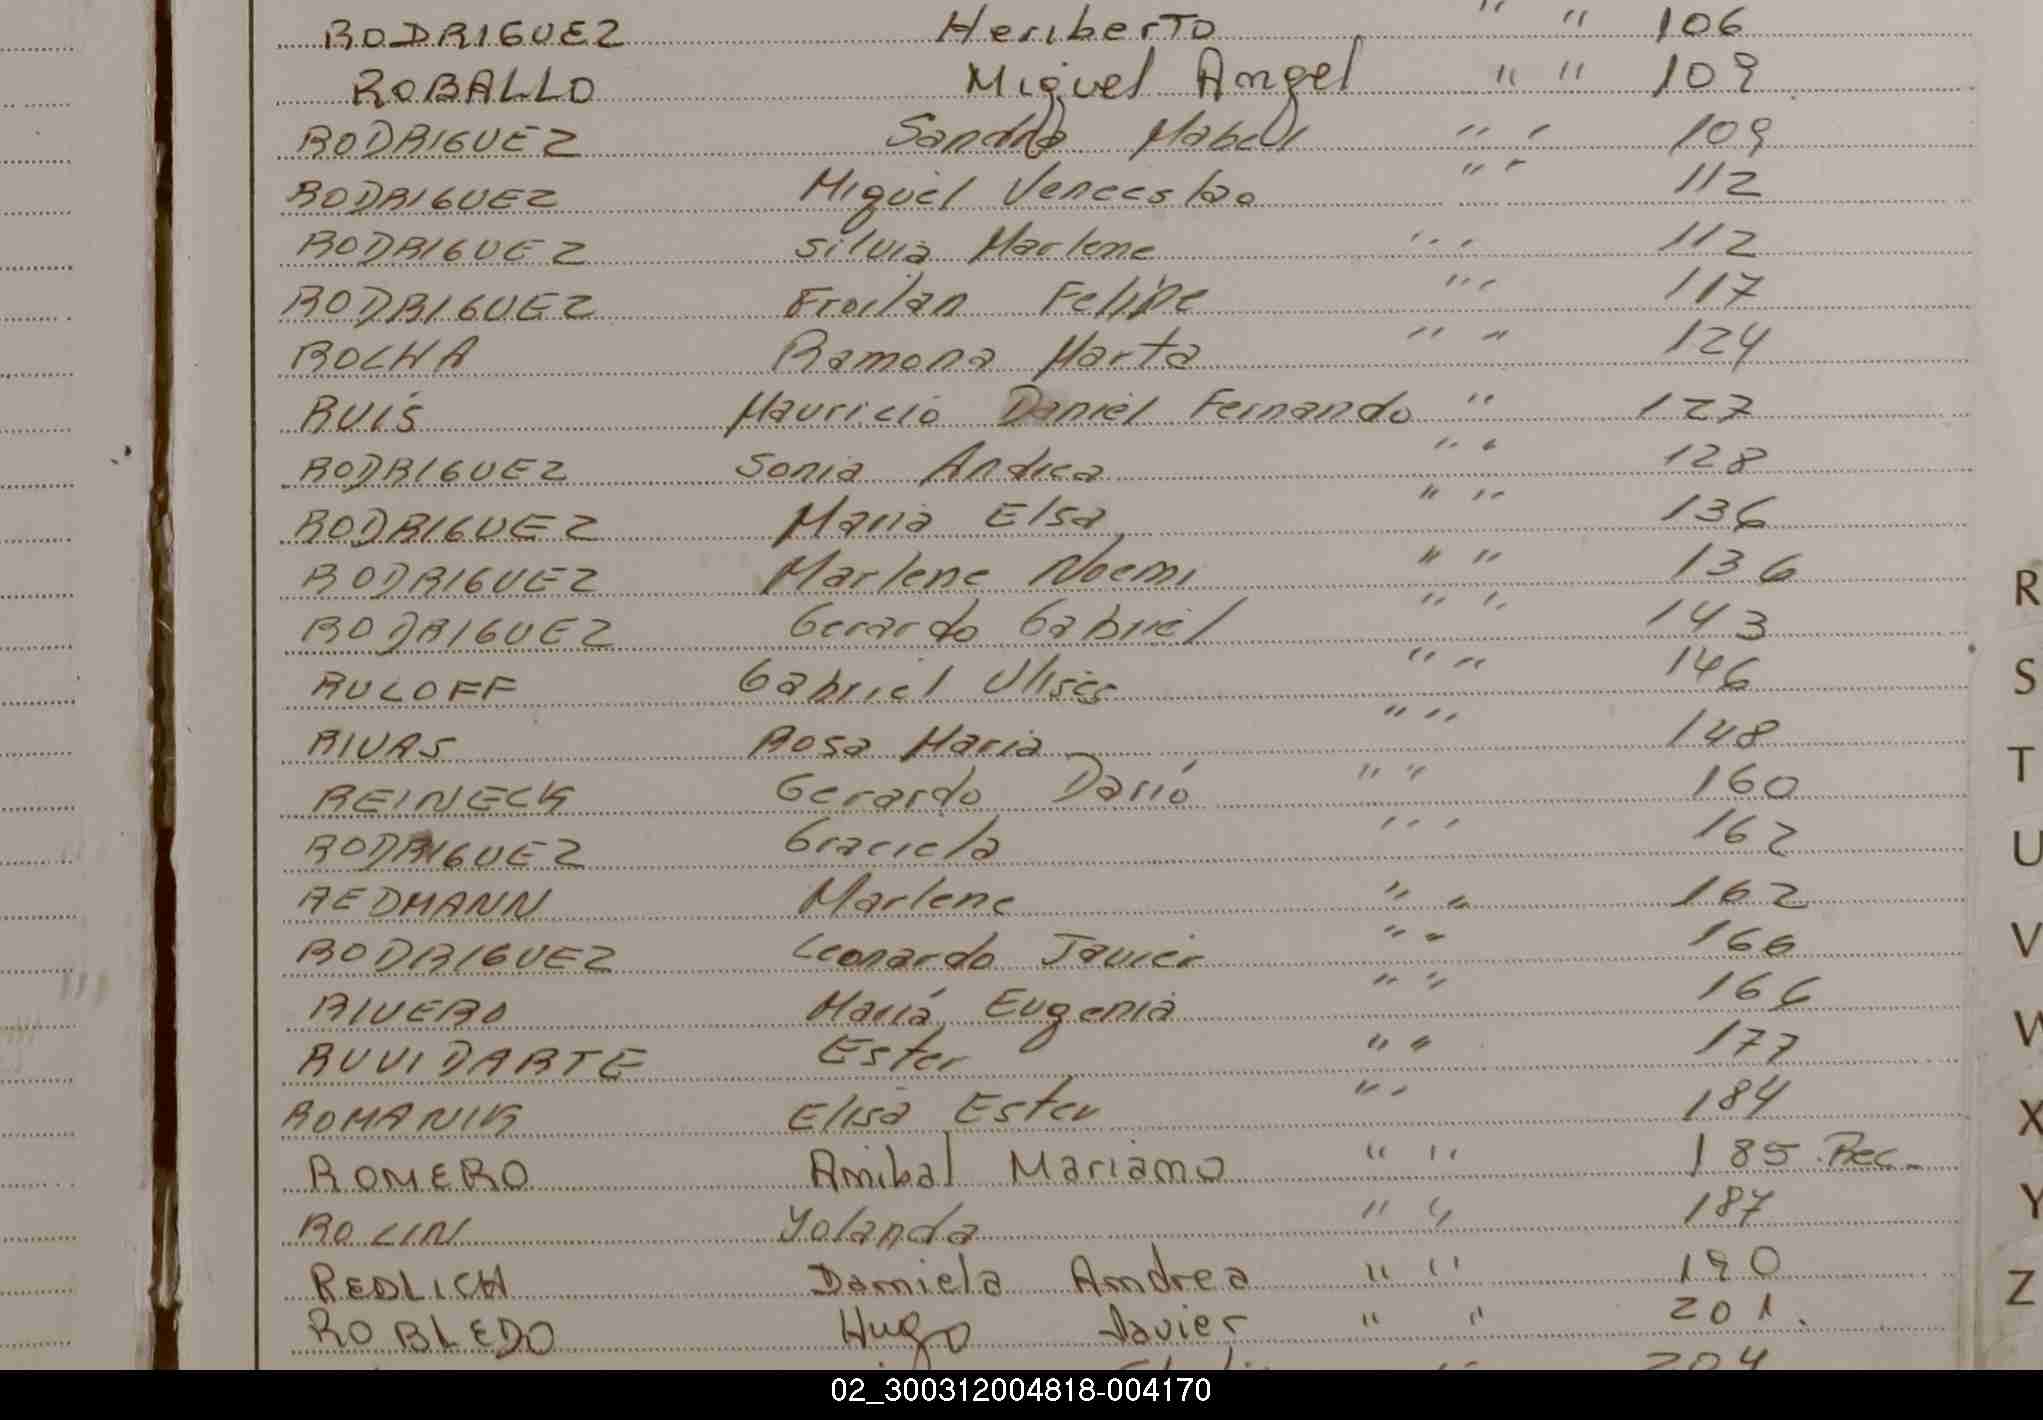 RODRIGUEZ Heriberto " " 106
ROBALLO Miguel Angel " " 109
RODRIGUEZ Sandra Mabel " " 109
RODRIGUEZ Miguel Venceslao " " 112
RODRIGUEZ Silvia Marlene " " 112
RODRIGUEZ Froilan Felipe " " 117
ROCHA Ramona Marta " " 124
RUIS Mauricio Daniel Fernando " 127
RODRIGUEZ Sonia Andrea " " 128
RODRIGUEZ Maria Elsa " " 136
RODRIGUEZ Marlene Noemi " " 136
RODRIGUEZ Gerardo Gabriel " " 143
RULOFF Gabriel Ulises " " 146
RIVAS Rosa Maria " " 148
REINECK Gerardo Darió " " 160
RODRIGUEZ Graciela " " 162
REDMANN Marlene " " 162
RODRIGUEZ Leonardo Javier " " 166
RIVERO María Eugenia " " 166
RUVIDARTE Ester " " 177
ROMANIK Elisa Ester " " 184
ROMERO Anibal Mariano " " 185 Rec.
ROLIN Yolanda " " 187
REDLICH Daniela Andrea " " 190
ROBLEDO Hugo Javier " " 201.
204
R
S
T
U
V
W
X
Y
Z
02_300312004818-004170